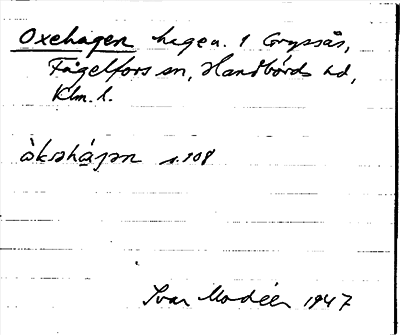 Oxehagen hage u. 1 Gryssås,
Fågelfors sn, Handbörds hd,
Klm. l.
òksəhágən s. 108
Ivar Modéer 1947